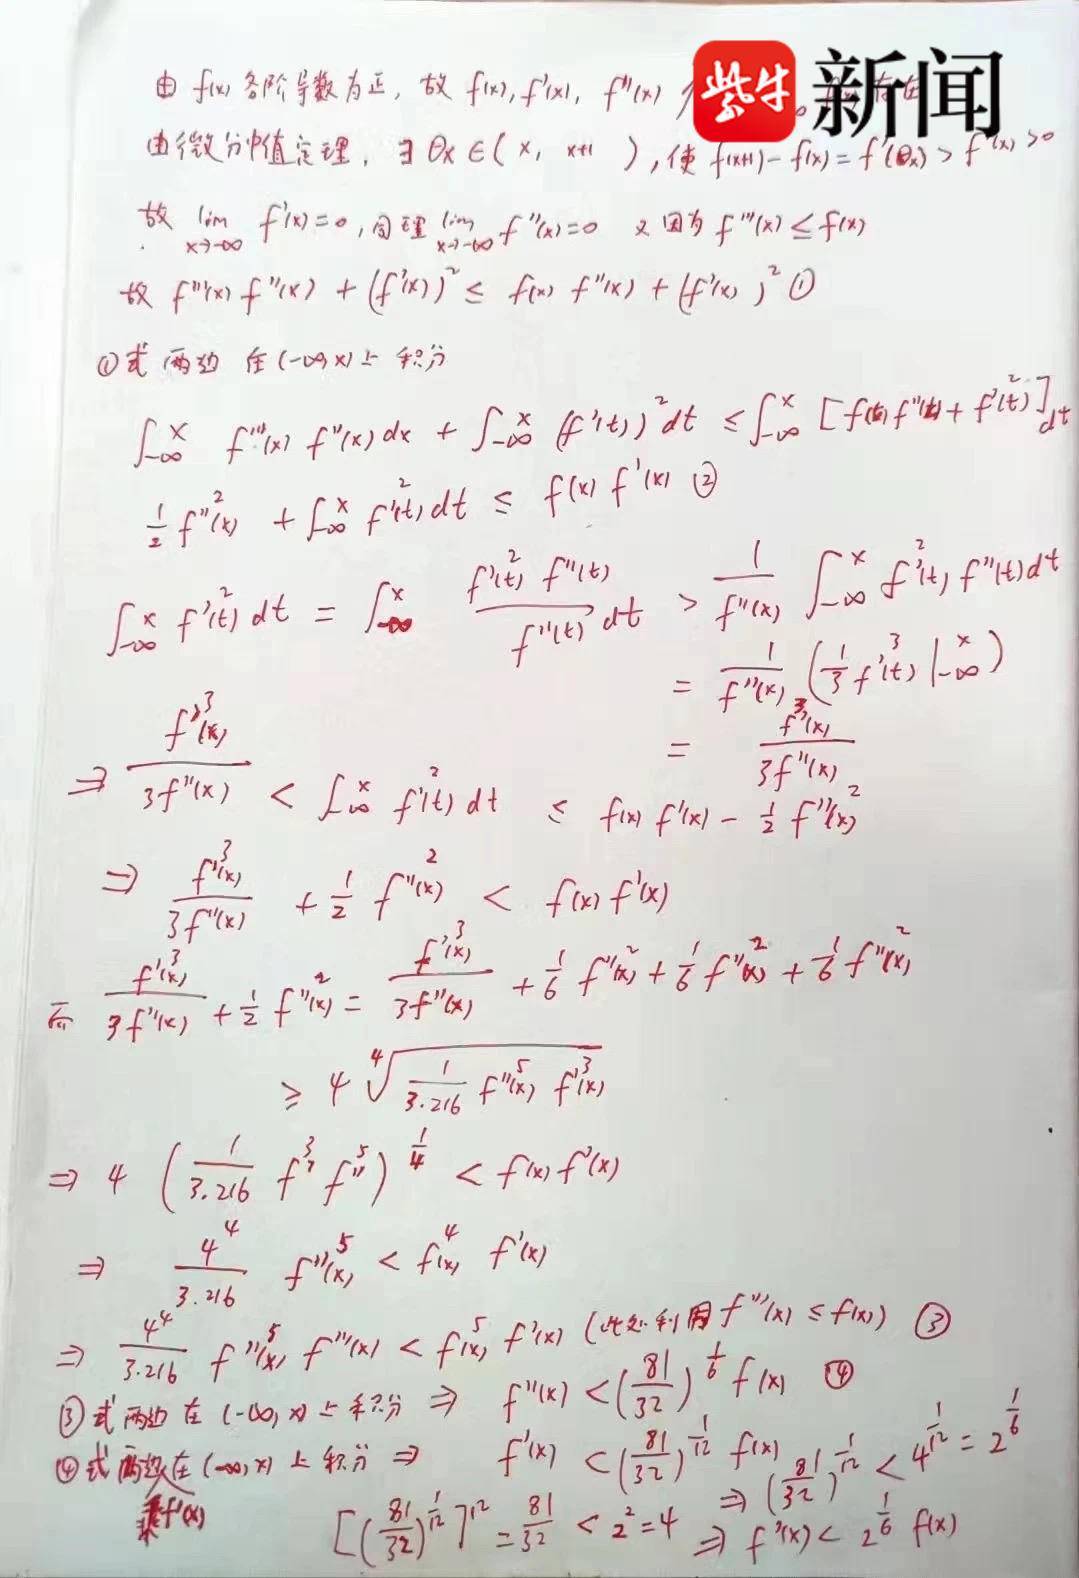 紫牛 新闻
由 f(x) 各阶导数为正, 故 f(x), f'(x), f''(x)
由微分中值定理, ∃ θx ∈ (x, x+1), 使 f(x+1) - f(x) = f'(θx) > f'(x) > 0
故 lim x→-∞ f'(x) = 0, 同理 lim x→-∞ f''(x) = 0 又因为 f'''(x) ≤ f(x)
故 f'''(x) f''(x) + (f'(x))² ≤ f(x) f''(x) + (f'(x))² ①
①式两边 在 (-∞, x) 上积分
∫_{-∞}^{x} f'''(x) f''(x) dx + ∫_{-∞}^{x} (f'(t))² dt ≤ ∫_{-∞}^{x} [f(t) f''(t) + f'(t)²] dt
1/2 f''(x)² + ∫_{-∞}^{x} f'(t)² dt ≤ f(x) f'(x) ②
∫_{-∞}^{x} f'(t)² dt = ∫_{-∞}^{x} f'(t)² f''(t) / f''(t) dt > 1/f''(x) ∫_{-∞}^{x} f'(t)² f''(t) dt
= 1/f''(x) (1/3 f'(t)³ |_{-∞}^{x})
= f'(x)³ / 3f''(x)
⇒ f'(x)³ / 3f''(x) < ∫_{-∞}^{x} f'(t)² dt ≤ f(x) f'(x) - 1/2 f''(x)²
⇒ f'(x)³ / 3f''(x) + 1/2 f''(x)² < f(x) f'(x)
而 f'(x)³ / 3f''(x) + 1/2 f''(x)² = f'(x)³ / 3f''(x) + 1/6 f''(x)² + 1/6 f''(x)² + 1/6 f''(x)²
≥ 4 ⁴√(1/(3·216) f''(x)⁵ f'(x)³)
⇒ 4 (1/(3·216) f'³ f''⁵)^{1/4} < f(x) f'(x)
⇒ 4⁴/(3·216) f''(x)⁵ < f(x)⁴ f'(x)
⇒ 4⁴/(3·216) f''(x)⁵ f'''(x) < f(x)⁵ f'(x) (此处利用 f'''(x) ≤ f(x)) ③
③式两边在 (-∞, x) 上积分 ⇒ f''(x) < (81/32)^{1/6} f(x) ④
④式两边在 (-∞, x) 上积分 ⇒ f'(x) < (81/32)^{1/12} f(x)
乘f'(x)
[(81/32)^{1/12}]^{12} = 81/32 < 2² = 4 ⇒ (81/32)^{1/12} < 4^{1/12} = 2^{1/6}
⇒ f'(x) < 2^{1/6} f(x)